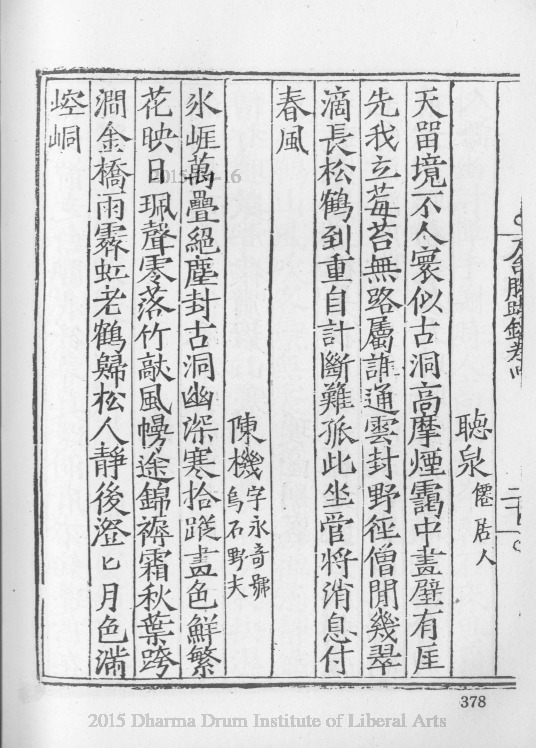 天台勝蹟錄卷四
二十
聽泉
僊居人
天畱境不人寰似古洞高摩煙靄中畫壁有厓
先我立莓苔無路屬誰通雲封野徑僧閒幾翠
滴長松鶴到重自計斷難孤此坐管将消息付
春風
陳機
字永奇號
烏石野夫
氷崕萬疊絕塵封古洞幽深寒拾蹤畫色鮮繁
花映日珮聲零落竹敲風幔途錦褥霜秋葉跨
澗金橋雨霽虹老鶴歸松人靜後澄匕月色滿
崆峒
378
2015 Dharma Drum Institute of Liberal Arts